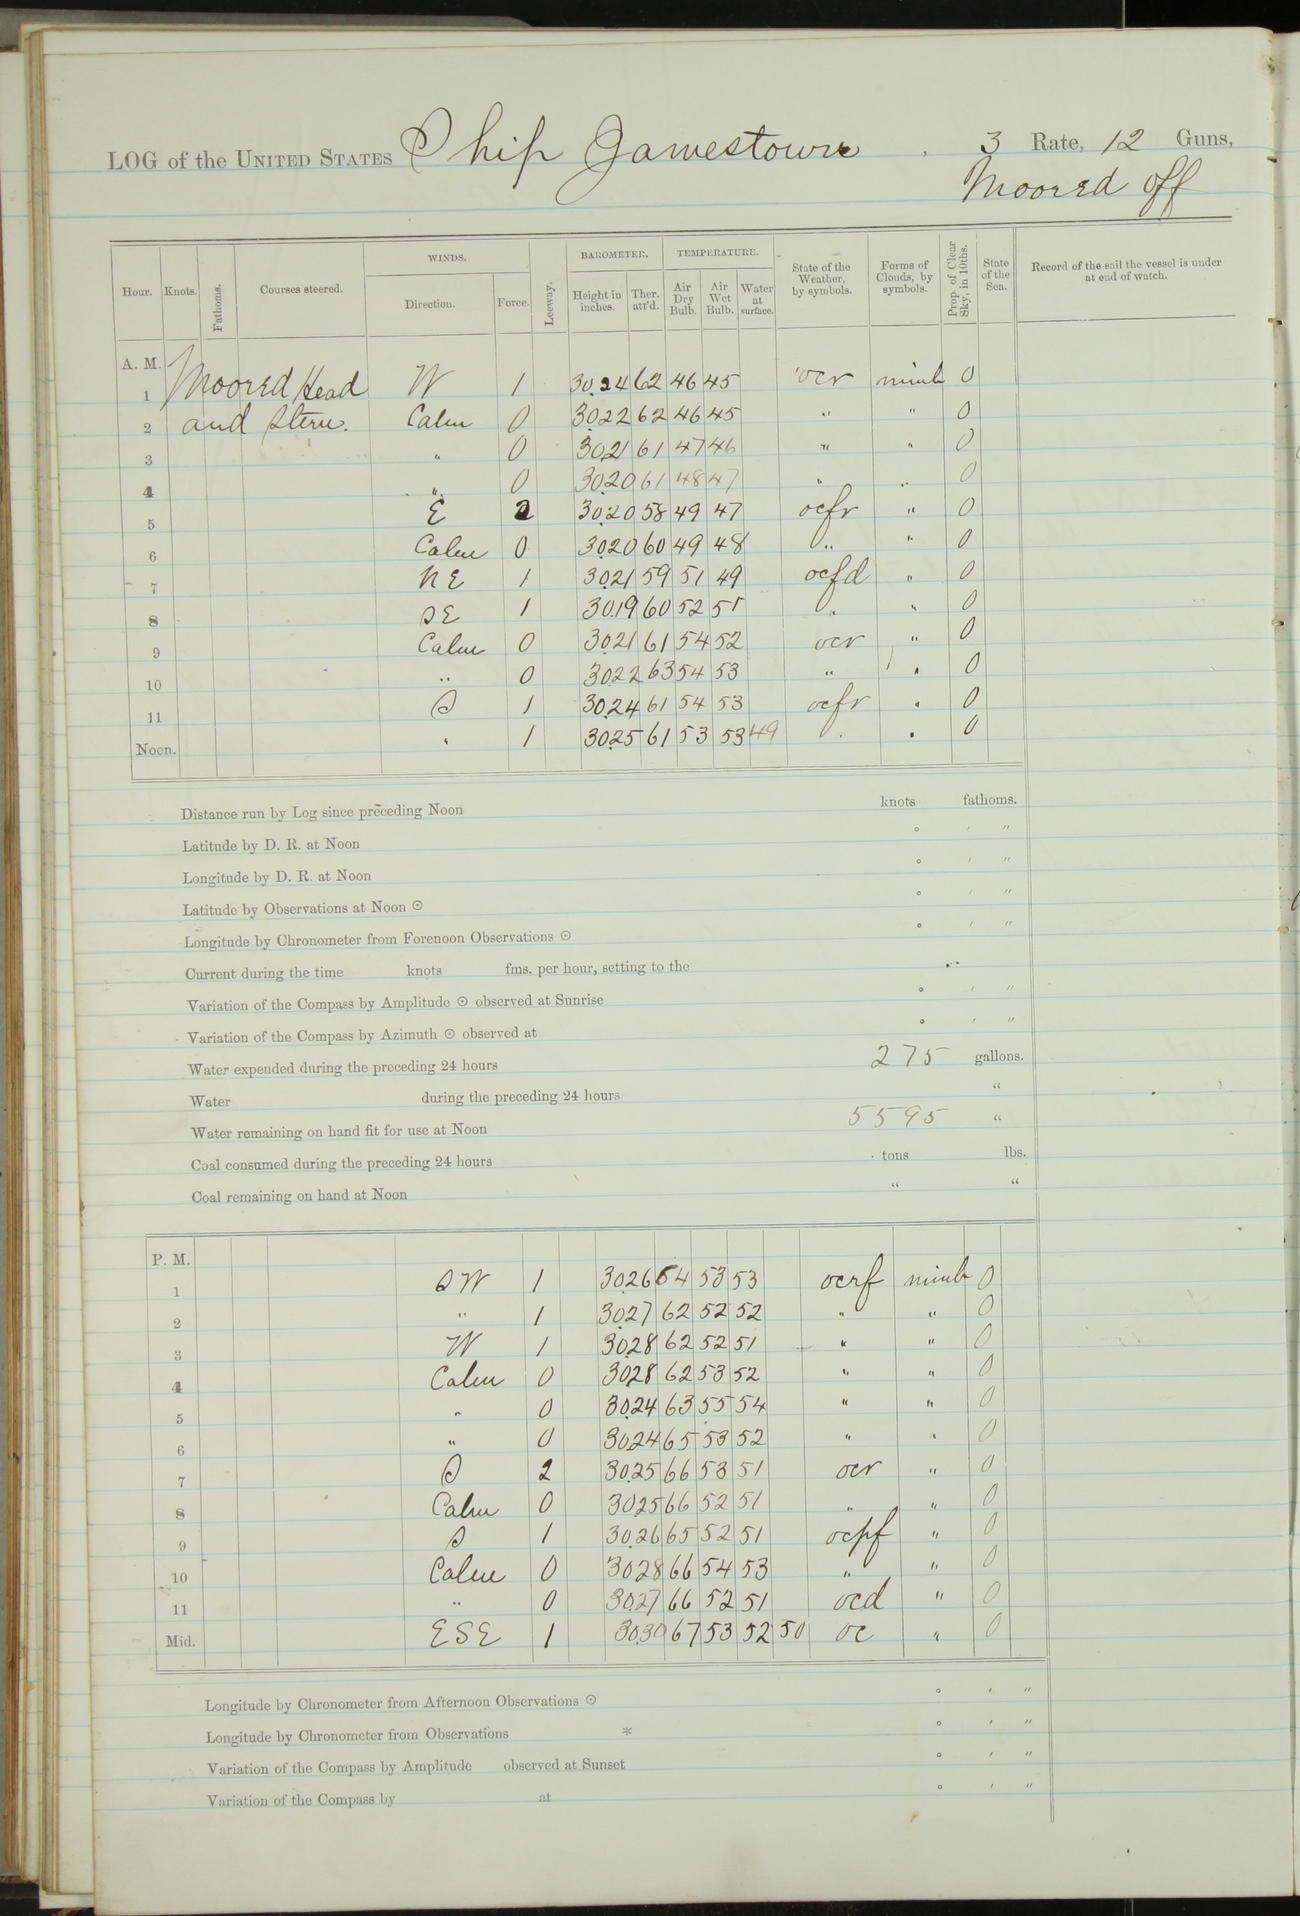 LOG of the UNITED STATES Ship Jamestown, 3 Rate, 12 Guns,
Moored off
Hour. Knots. Fathoms. Courses steered. WINDS. Direction. Force. Leeway. BAROMETER. Height in inches. Ther. att'd. TEMPERATURE. Air Dry Bulb. Air Wet Bulb. Water at surface. State of the Weather, by symbols. Forms of Clouds, by symbols. Prop. of Clear Sky, in 10ths. State of the Sea. Record of the sail the vessel is under at end of watch.
A. M.
1 Moored Head W 1 30.24 62 46 45 ocr nimb 0
2 and Stern. Calm 0 30.22 62 46 45 " " 0
3 " 0 30.21 61 47 46 " " 0
4 " 0 30.20 61 48 47 " " 0
5 E 2 30.20 58 49 47 ocfr " 0
6 Calm 0 30.20 60 49 48 " " 0
7 NE 1 30.21 59 51 49 ocfd " 0
8 SE 1 30.19 60 52 51 " " 0
9 Calm 0 30.21 61 54 52 ocr " 0
10 " 0 30.22 63 54 53 " " 0
11 S 1 30.24 61 54 53 ocfr " 0
Noon. " 1 30.25 61 53 53 49 " " 0
Distance run by Log since preceding Noon knots fathoms.
Latitude by D. R. at Noon ° ′ ″
Longitude by D. R. at Noon ° ′ ″
Latitude by Observations at Noon ☉ ° ′ ″
Longitude by Chronometer from Forenoon Observations ☉ ° ′ ″
Current during the time knots fms. per hour, setting to the
Variation of the Compass by Amplitude ☉ observed at Sunrise ° ′ ″
Variation of the Compass by Azimuth ☉ observed at ° ′ ″
Water expended during the preceding 24 hours 275 gallons.
Water during the preceding 24 hours "
Water remaining on hand fit for use at Noon 5595 "
Coal consumed during the preceding 24 hours tons lbs.
Coal remaining on hand at Noon " "
P. M.
1 SW 1 30.26 64 53 53 ocrf nimb 0
2 " 1 30.27 62 52 52 " " 0
3 W 1 30.28 62 52 51 " " 0
4 Calm 0 30.28 62 53 52 " " 0
5 " 0 30.24 63 55 54 " " 0
6 " 0 30.24 65 53 52 " " 0
7 S 2 30.25 66 53 51 ocr " 0
8 Calm 0 30.25 66 52 51 " " 0
9 S 1 30.26 65 52 51 ocpf " 0
10 Calm 0 30.28 66 54 53 " " 0
11 " 0 30.27 66 52 51 ocd " 0
Mid. ESE 1 30.30 67 53 52 50 oc " 0
Longitude by Chronometer from Afternoon Observations ☉ ° ′ ″
Longitude by Chronometer from Observations * ° ′ ″
Variation of the Compass by Amplitude observed at Sunset ° ′ ″
Variation of the Compass by at ° ′ ″